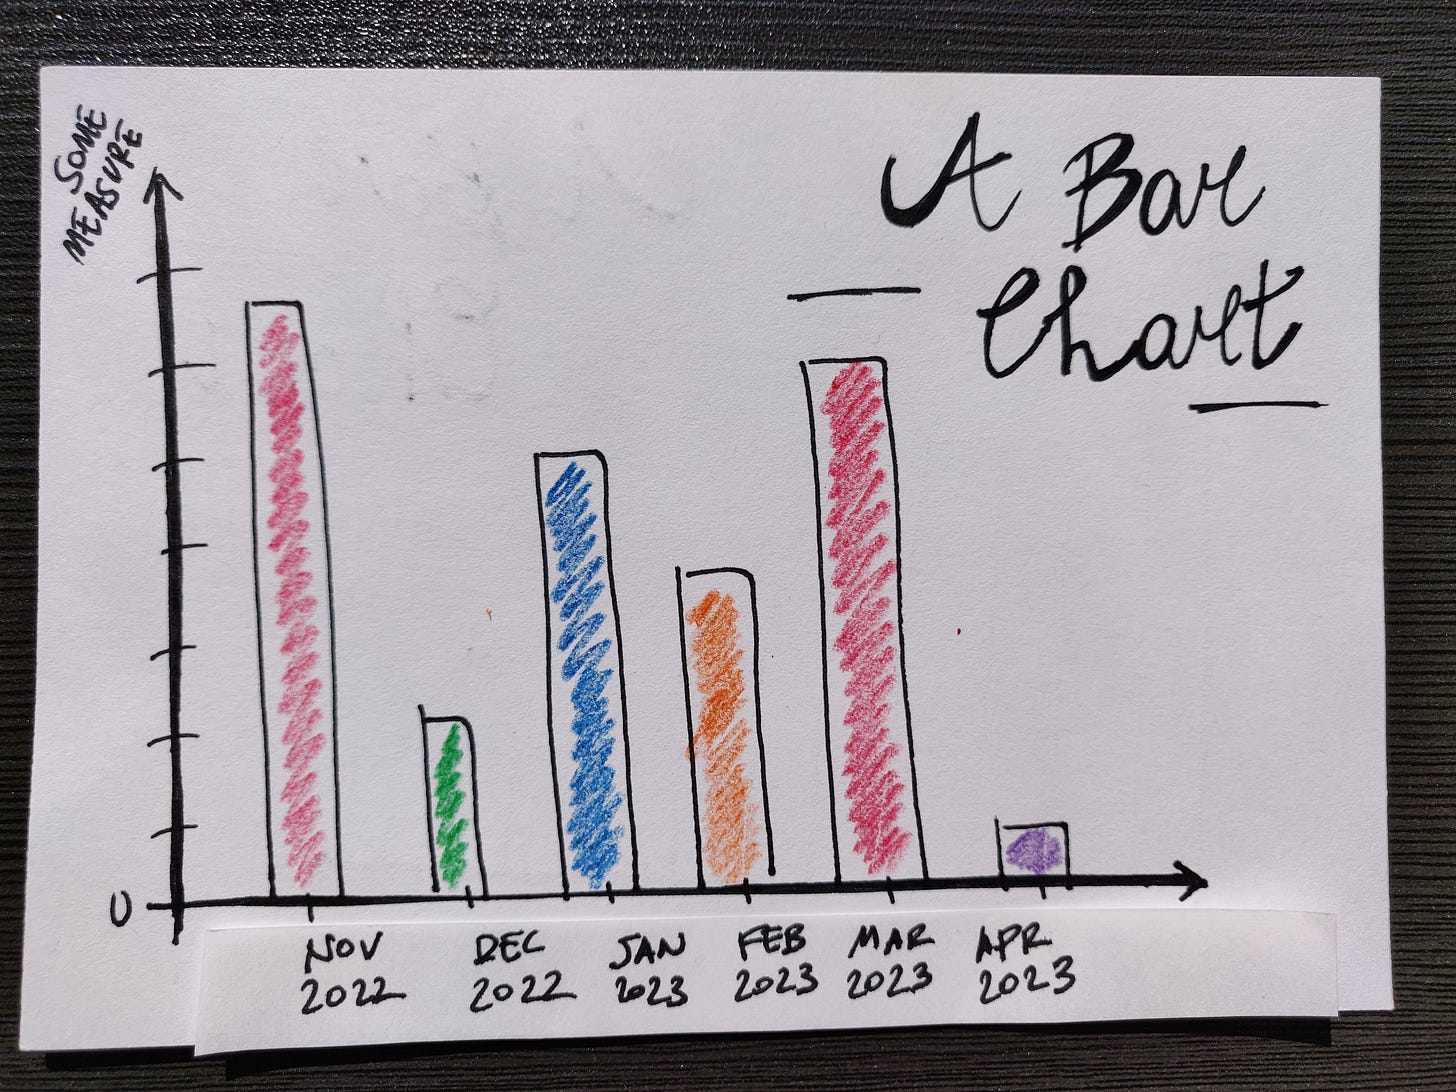 SOME
MEASURE
A Bar
Chart
0
NOV
2022
DEC
2022
JAN
2023
FEB
2023
MAR
2023
APR
2023